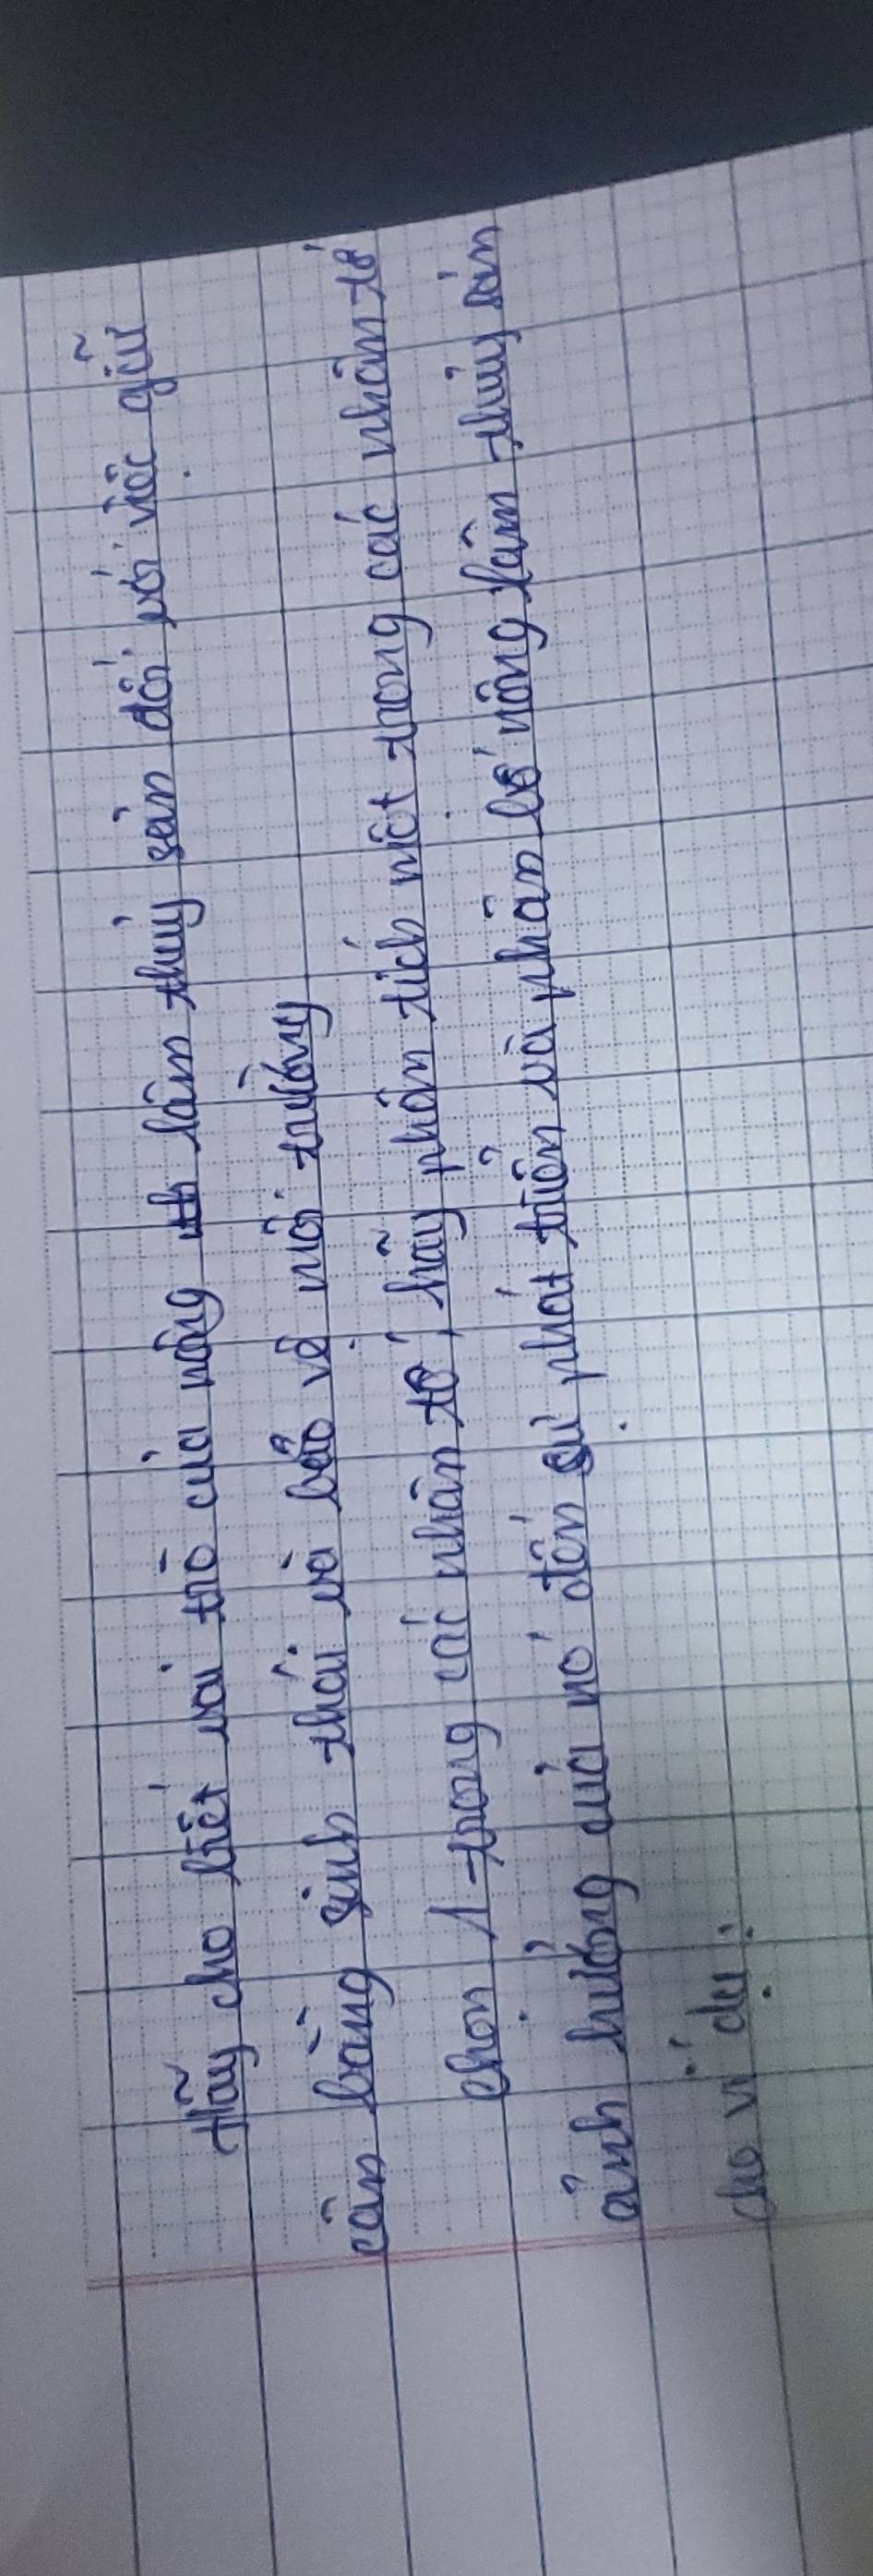 Hãy cho biết vai trò của nông lâm thủy sản đối với việc giữ
cân bằng sinh thái và bảo vệ môi trường
chọn 1 trong các nhân tố, hãy phân tích một trong các nhân tố
ảnh hưởng của nó đến sự phát triển và phân bố nông lâm thủy sản
cho ví dụ.